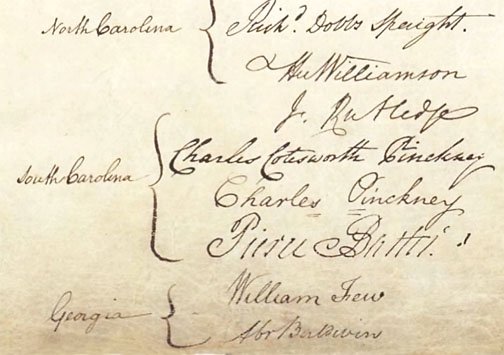 North Carolina
Rich'd. Dobbs Spaight.
Hu Williamson
J. Rutledge
South Carolina
Charles Cotesworth Pinckney
Charles Pinckney
Pierce Butler.
Georgia
William Few
Abr Baldwin